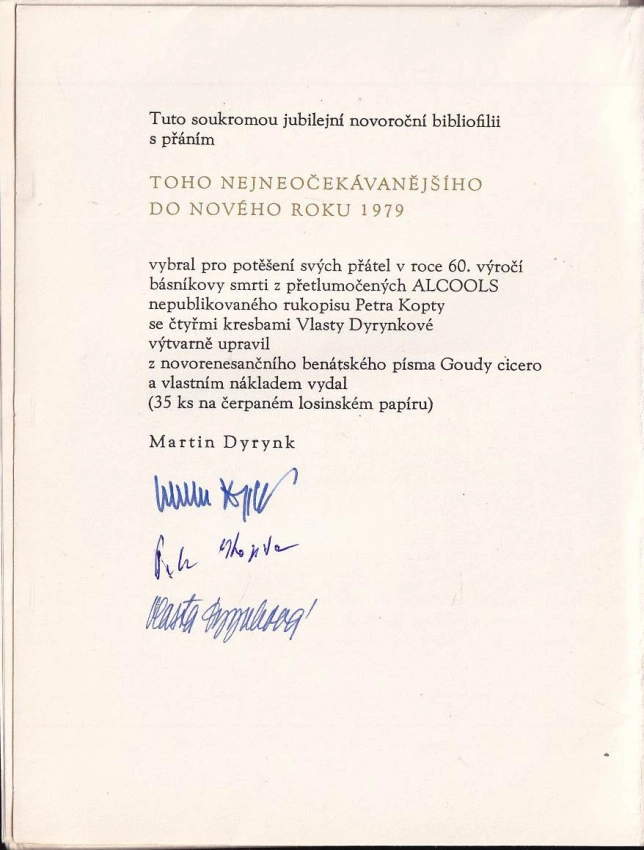 Tuto soukromou jubilejní novoroční bibliofilii
s přáním
TOHO NEJNEOČEKÁVANĚJŠÍHO
DO NOVÉHO ROKU 1979
vybral pro potěšení svých přátel v roce 60. výročí
básníkovy smrti z přetlumočených ALCOOLS
nepublikovaného rukopisu Petra Kopty
se čtyřmi kresbami Vlasty Dyrynkové
výtvarně upravil
z novorenesančního benátského písma Goudy cicero
a vlastním nákladem vydal
(35 ks na čerpaném losinském papíru)
Martin Dyrynk
Vlasta Dyrynková